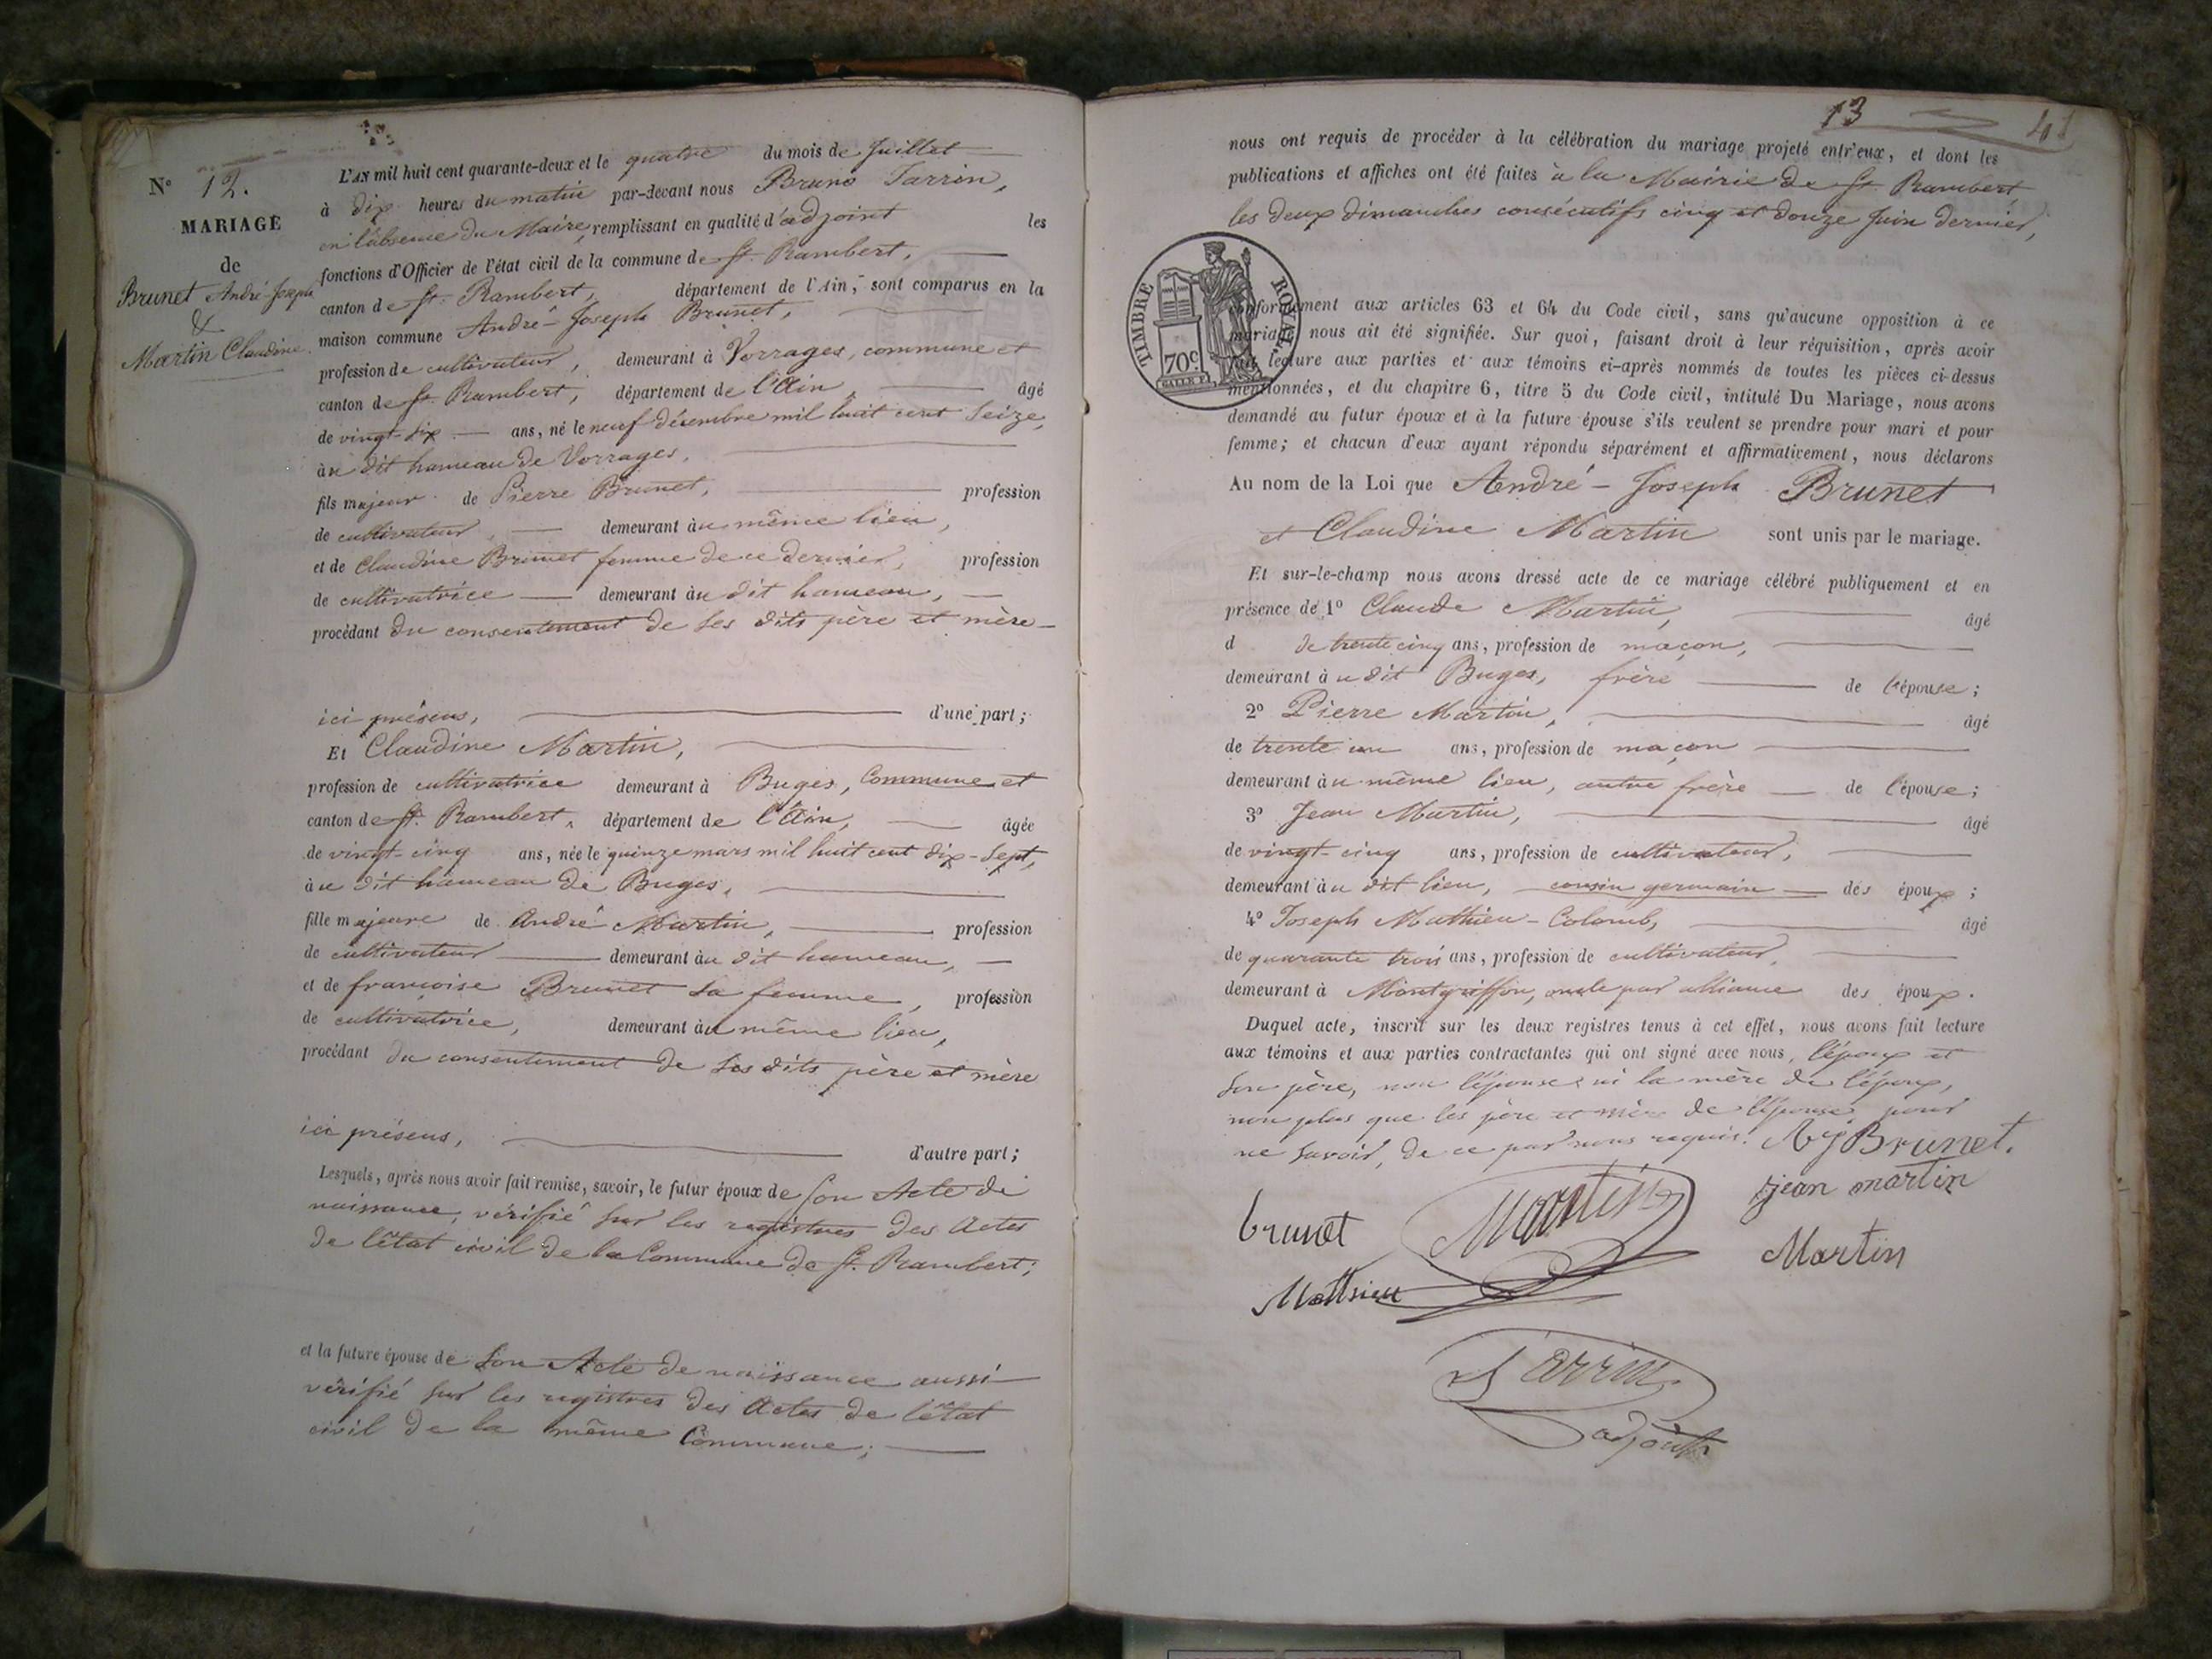 N° 12.
MARIAGE
de
Brunet André-Joseph
&
Martin Claudine.
L'AN mil huit cent quarante-deux et le quatre du mois de Juillet
à dix heures du matin par-devant nous Bruno Sarrin,
en l'absence du Maire, remplissant en qualité d'adjoint les
fonctions d'Officier de l'état civil de la commune de St. Rambert,
canton de St. Rambert, département de l'Ain, sont comparus en la
maison commune André-Joseph Brunet,
profession de cultivateur, demeurant à Vorrages, commune et
canton de St. Rambert, département de l'Ain, âgé
de vingt-six ans, né le neuf décembre mil huit cent seize,
àu dit hameau de Vorrages,
fils majeur de Pierre Brunet, profession
de cultivateur, demeurant àu même lieu,
et de Claudine Brunet femme de ce dernier, profession
de cultivatrice demeurant àu dit hameau,
procédant du consentement de ses dits père et mère
ici présens, d'une part;
Et Claudine Martin,
profession de cultivatrice demeurant à Buges, Commune et
canton de St. Rambert, département de l'Ain, âgée
de vingt-cinq ans, née le quinze mars mil huit cent dix-sept,
àu dit hameau de Buges,
fille majeure de André Martin, profession
de cultivateur demeurant àu dit hameau,
et de françoise Brunet sa femme, profession
de cultivatrice, demeurant àu même lieu,
procédant du consentement de ses dits père et mère
ici présens, d'autre part;
Lesquels, après nous avoir fait remise, savoir, le futur époux de son Acte de
naissance, vérifié sur les registres des Actes
de l'état civil de la Commune de St. Rambert;
et la future épouse de son Acte de naissance aussi
vérifié sur les registres des Actes de l'état
civil de la même Commune;
13
41
nous ont requis de procéder à la célébration du mariage projeté entr'eux, et dont les
publications et affiches ont été faites à la Mairie de St. Rambert
les deux dimanches consécutifs cinq et douze Juin dernier,
TIMBRE ROYAL
70c.
conformément aux articles 63 et 64 du Code civil, sans qu'aucune opposition à ce
mariage nous ait été signifiée. Sur quoi, faisant droit à leur réquisition, après avoir
fait lecture aux parties et aux témoins ci-après nommés de toutes les pièces ci-dessus
mentionnées, et du chapitre 6, titre 5 du Code civil, intitulé Du Mariage, nous avons
demandé au futur époux et à la future épouse s'ils veulent se prendre pour mari et pour
femme; et chacun d'eux ayant répondu séparément et affirmativement, nous déclarons
Au nom de la Loi que André-Joseph Brunet
et Claudine Martin sont unis par le mariage.
Et sur-le-champ nous avons dressé acte de ce mariage célébré publiquement et en
présence de 1° Claude Martin, âgé
d de trente cinq ans, profession de maçon,
demeurant àu dit Buges, frère de l'épouse;
2° Pierre Martin, âgé
de trente un ans, profession de maçon
demeurant àu même lieu, autre frère de l'épouse;
3° Jean Martin, âgé
de vingt-cinq ans, profession de cultivateur,
demeurant àu dit lieu, cousin germain des époux;
4° Joseph Mathieu-Colomb, âgé
de quarante trois ans, profession de cultivateur,
demeurant à Montgriffon, oncle par alliance des époux.
Duquel acte, inscrit sur les deux registres tenus à cet effet, nous avons fait lecture
aux témoins et aux parties contractantes qui ont signé avec nous, l'époux et
son père, non l'épouse ni la mère de l'époux,
non plus que les père et mère de l'épouse, pour
ne savoir, de ce par nous requis. AJ Brunet.
jean martin
brunet Martin
Martin
Mathieu
Sarrin
adjoint